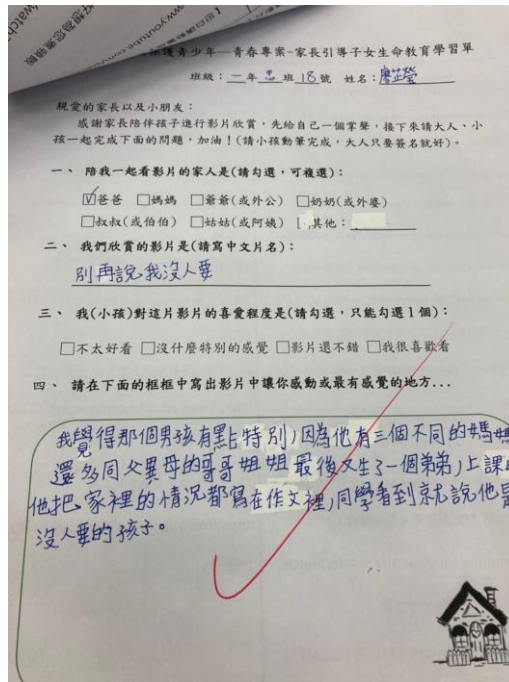 www.youtube.com
保護青少年—青春專案-家長引導子女生命教育學習單
班級：一年忠班18號 姓名：廖芷瑩
親愛的家長以及小朋友：
感謝家長陪伴孩子進行影片欣賞，先給自己一個掌聲，接下來請大人、小
孩一起完成下面的問題，加油！(請小孩動筆完成，大人只要簽名就好)。
一、 陪我一起看影片的家人是(請勾選，可複選)：
☑爸爸 □媽媽 □爺爺(或外公) □奶奶(或外婆)
□叔叔(或伯伯) □姑姑(或阿姨) 其他：
二、 我們欣賞的影片是(請寫中文片名)：
別再說我沒人要
三、 我(小孩)對這片影片的喜愛程度是(請勾選，只能勾選1個)：
□不太好看 □沒什麼特別的感覺 □影片還不錯 □我很喜歡看
四、 請在下面的框框中寫出影片中讓你感動或最有感覺的地方...
我覺得那個男孩有點特別，因為他有三個不同的媽媽
還多同父異母的哥哥姐姐最後又生了一個弟弟，上課
他把家裡的情況都寫在作文裡，同學看到就說他是
沒人要的孩子。